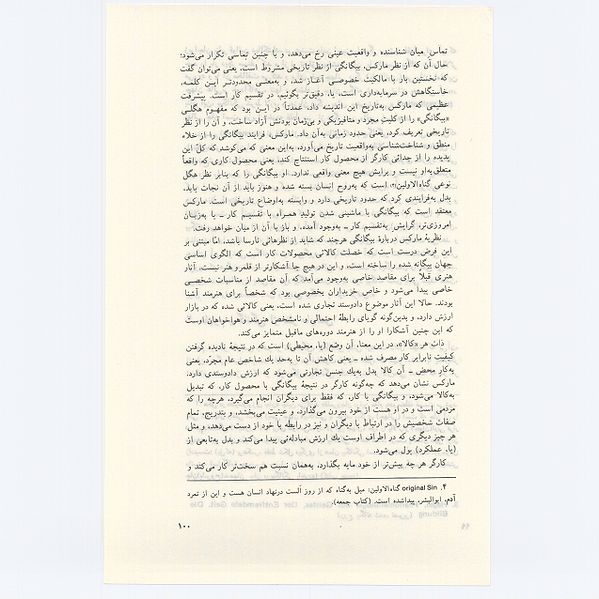 تماس میان شناسنده و واقعیت عینی رخ می‌دهد، و با چنین تماسی تکرار می‌شود؛
حال آن که از نظر مارکس، بیگانگی از نظر تاریخی مشروط است، یعنی می‌توان گفت
که نخستین بار با مالکیت خصوصی آغاز شد، و به‌معنی محدودتر این کلمه،
خاستگاهش در سرمایه‌داری است، یا، دقیق‌تر بگوئیم، در تقسیم کار است. پیشرفت
عظیمی که مارکس به‌تاریخ این اندیشه داد، عمدتاً در این بود که مفهوم هگلی
«بیگانگی» را از کلیتِ مجرد و متافیزیکی و بی‌زمان بودنش آزاد ساخت، و آن را از نظر
تاریخی تعریف کرد، یعنی حدود زمانی به‌آن داد. مارکس، فرایند بیگانگی را از خلاء
منطق و شناخت‌شناسی به‌واقعیت تاریخ می‌آورد، به‌این معنی که می‌کوشد که کل این
پدیده را از جدائی کارگر از محصول کار استنتاج کند، یعنی محصول کاری که واقعاً
متعلق به‌او نیست و برایش هیچ معنی واقعی ندارد. او بیگانگی را که بنابر نظر هگل
نوعی گناه‌الاولین۴، است که به‌روح انسان بسته شده و هنوز باید از آن نجات یابد،
بدل به‌فرایندی کرد که حدود تاریخی دارد و وابسته به‌اوضاع تاریخی است. مارکس
معتقد است که بیگانگی با ماشینی شدن تولید همراه با تقسیم کار ـ یا به‌زبان
امروزی‌تر، گرایش به‌تقسیم کار ـ به‌وجود آمده، و باز با آن از میان خواهد رفت.
نظریهٔ مارکس دربارهٔ بیگانگی هرچند که شاید از نظرهائی نارسا باشد، اما مبتنی بر
این فرض درست است که خصلت کالائی محصولات کار است که الگوی اساسی
جهان بیگانه شده را ساخته است، و این در هیچ جا آشکارتر از قلمرو هنر نیست. آثار
هنری قبلاً برای مقاصد خاصی به‌وجود می‌آمد که آن مقاصد از مناسبات شخصی
خاصی پیدا می‌شود و خاص خریداران بخصوصی بود که شخصاً برای هنرمند آشنا
بودند. حالا این آثار موضوع دادوستد تجاری شده است، یعنی کالائی شده که در بازار
ارزش دارد، و بدین‌گونه گویای رابطهٔ احتمالی و نامشخص هنرمند و هواخواهان اوست
که این چنین آشکارا او را از هنرمند دوره‌های ماقبل متمایز می‌کند.
ذات هر «کالا»، در این معنا، آن وضع (یا، محیطی) است که در نتیجهٔ نادیده گرفتن
کیفیت نابرابر کار مصرف شده ـ یعنی کاهش آن تا به‌حد یك شاخص عام مجرّد، یعنی
به‌کارِ محض ـ آن کالا بدل به‌یك جنس تجارتی می‌شود که ارزش دادوستدی دارد.
مارکس نشان می‌دهد که چه‌گونه کارگر در نتیجهٔ بیگانگی با محصول کار، که تبدیل
به‌کالا می‌شود، و بیگانگی با کار، که فقط برای دیگران انجام می‌گیرد، هرچه را که
مردمی است و در او هست از خود بیرون می‌گذارد، و عینیت می‌بخشد، و بتدریج، تمام
صفات شخصیش را در ارتباط با دیگران و نیز در رابطه با خود از دست می‌دهد، و مثل
هر چیز دیگری که در اطراف اوست یك ارزش مبادله‌ئی پیدا می‌کند و بدل به‌تابعی از
(یا، عملکرد) پول می‌شود.
کارگر هر چه بیش‌تر از خود مایه بگذارد، به‌همان نسبت هم سخت‌تر کار می‌کند و
۴. original Sin گناه‌الاولین؛ میل به‌گناه که از روز اَلَست درنهاد انسان هست و این از تمرد
آدم، ابوالبشر، پیداشده است. (کتاب جمعه).
۱۰۰